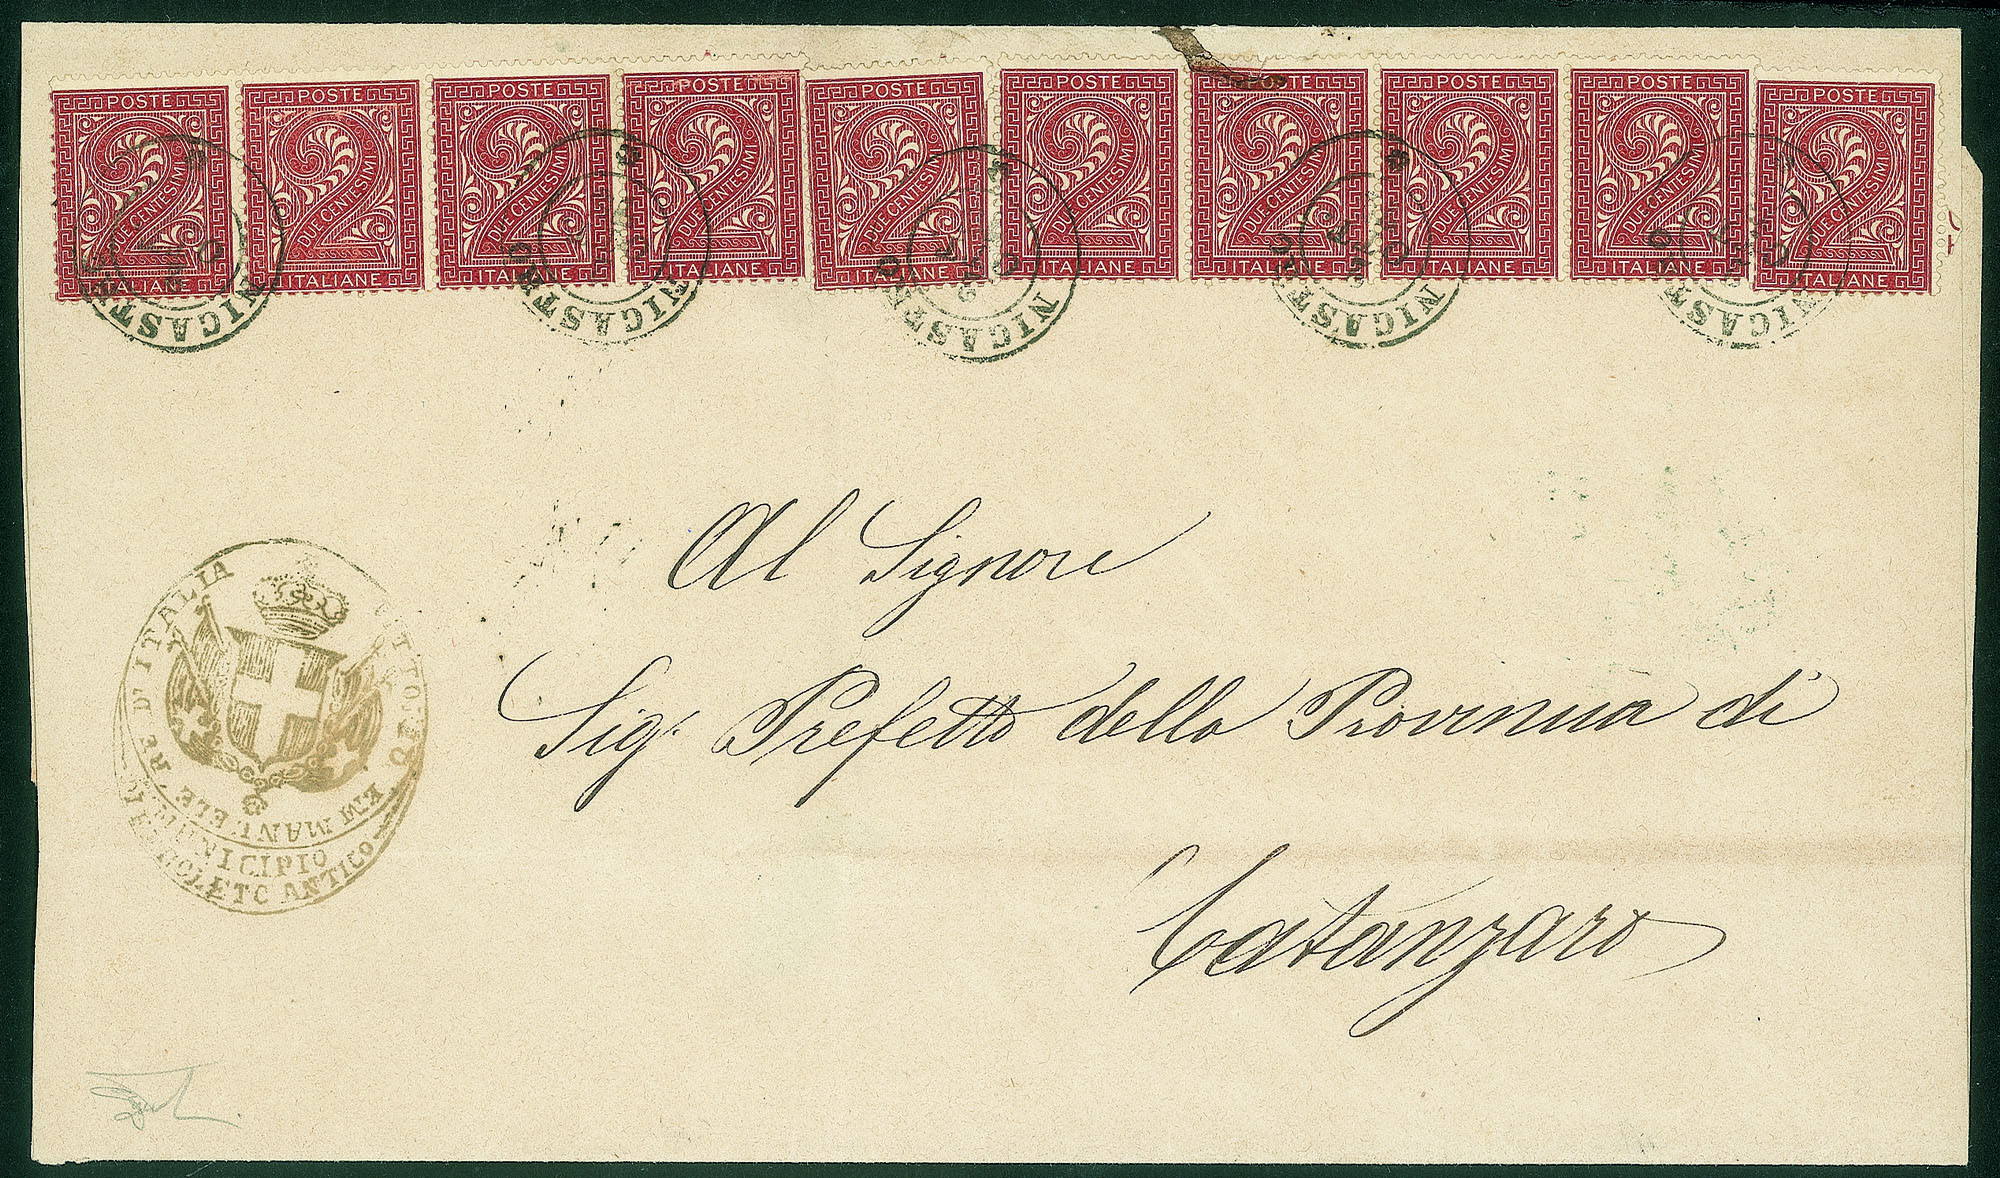 POSTE POSTE POSTE POSTE POSTE POSTE POSTE POSTE POSTE POSTE
2 2 2 2 2 2 2 2 2 2
DUE CENTESIMI DUE CENTESIMI DUE CENTESIMI DUE CENTESIMI DUE CENTESIMI DUE CENTESIMI DUE CENTESIMI DUE CENTESIMI DUE CENTESIMI DUE CENTESIMI
ITALIANE ITALIANE ITALIANE ITALIANE ITALIANE ITALIANE ITALIANE ITALIANE ITALIANE ITALIANE
NICASTRO NICASTRO NICASTRO NICASTRO NICASTRO
Al Signore
Sigr Prefetto della Provincia di
Catanzaro
VITTORIO EMANUELE RE D'ITALIA
MUNICIPIO
ANTICO